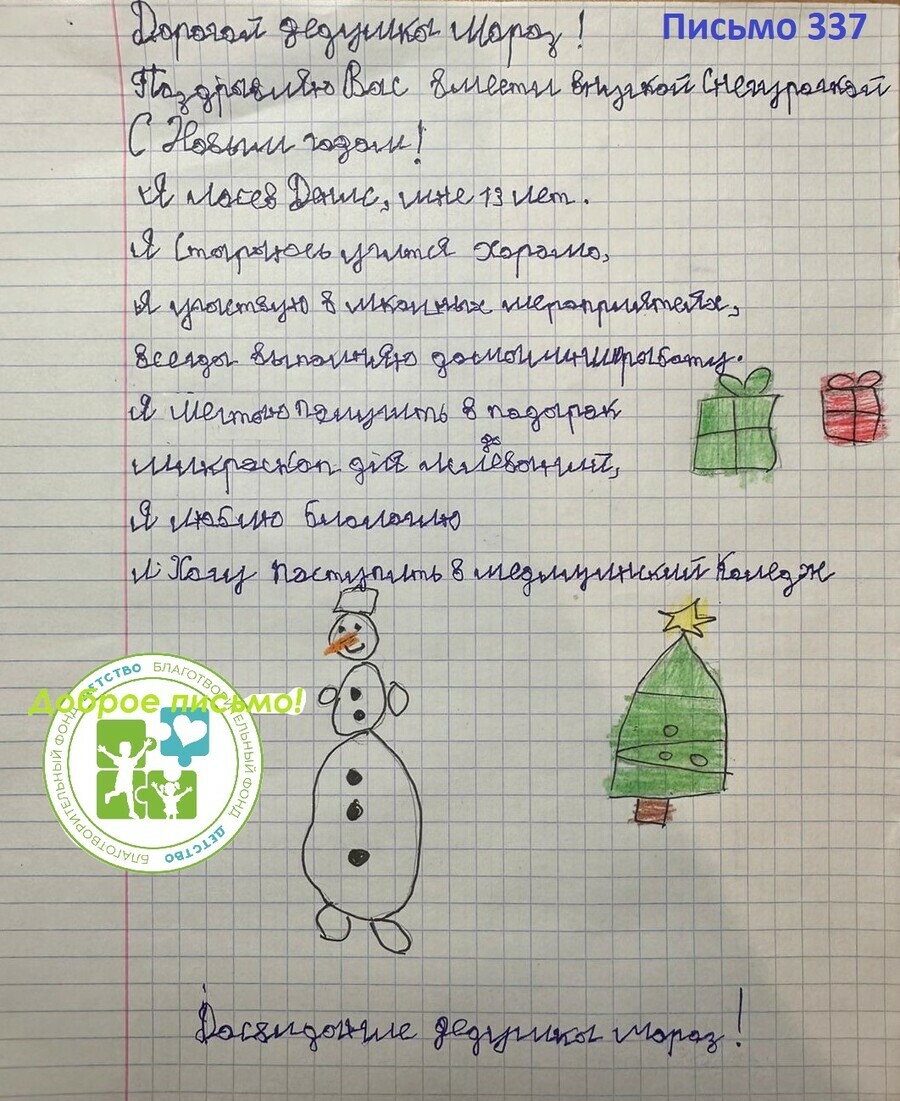 Письмо 337
Дорогой дедушка Мороз!
Поздравляю Вас вместе внучкой Снегурочкой
С Новым годом!
Я Денис, мне 13 лет.
Я стараюсь учится хорашо,
Я участвую в мероприятеях,
всегда выполняю работу.
Я мечтаю палучить в падарак
микраскоп для
Я люблю биологию
И Хочу паступить в медицинский Каледж
Доброе письмо!
БЛАГОТВОРИТЕЛЬНЫЙ ФОНД ДЕТСТВО
БЛАГОТВОРИТЕЛЬНЫЙ ФОНД ДЕТСТВО
Досвидание дедушка Мороз!